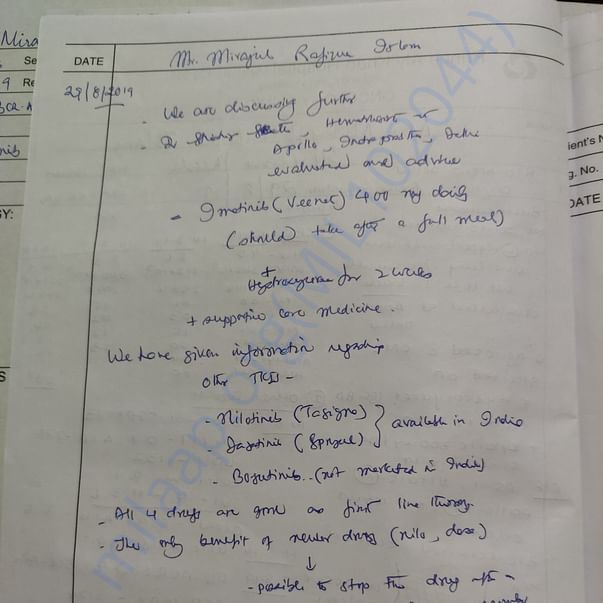 Mira
Se
9 Re
BCR-A
nib
GY:
S
DATE
Mr. Mirajul Rafizu Islam
29/8/2019
- We are discussing further
- Dr , Hematologist
Apollo, Indraprastha, Delhi
evaluated and advise
- Imatinib (Veenat) 400 mg daily
(should take after a full meal)
+
Hydroxyurea for 2 weeks
+ supportive care medicine.
We have given information regarding
other TKIs -
- Nilotinib (Tasigna)
- Dasatinib (Sprycel)
available in India
- Bosutinib.. (not marketed in India)
- All 4 drugs are good as first line therapy.
- The only benefit of newer drugs (nilo, dasa)
↓
- possible to stop the drug after -
ient's N
g. No.
DATE
milaap.org(MIL1020044)